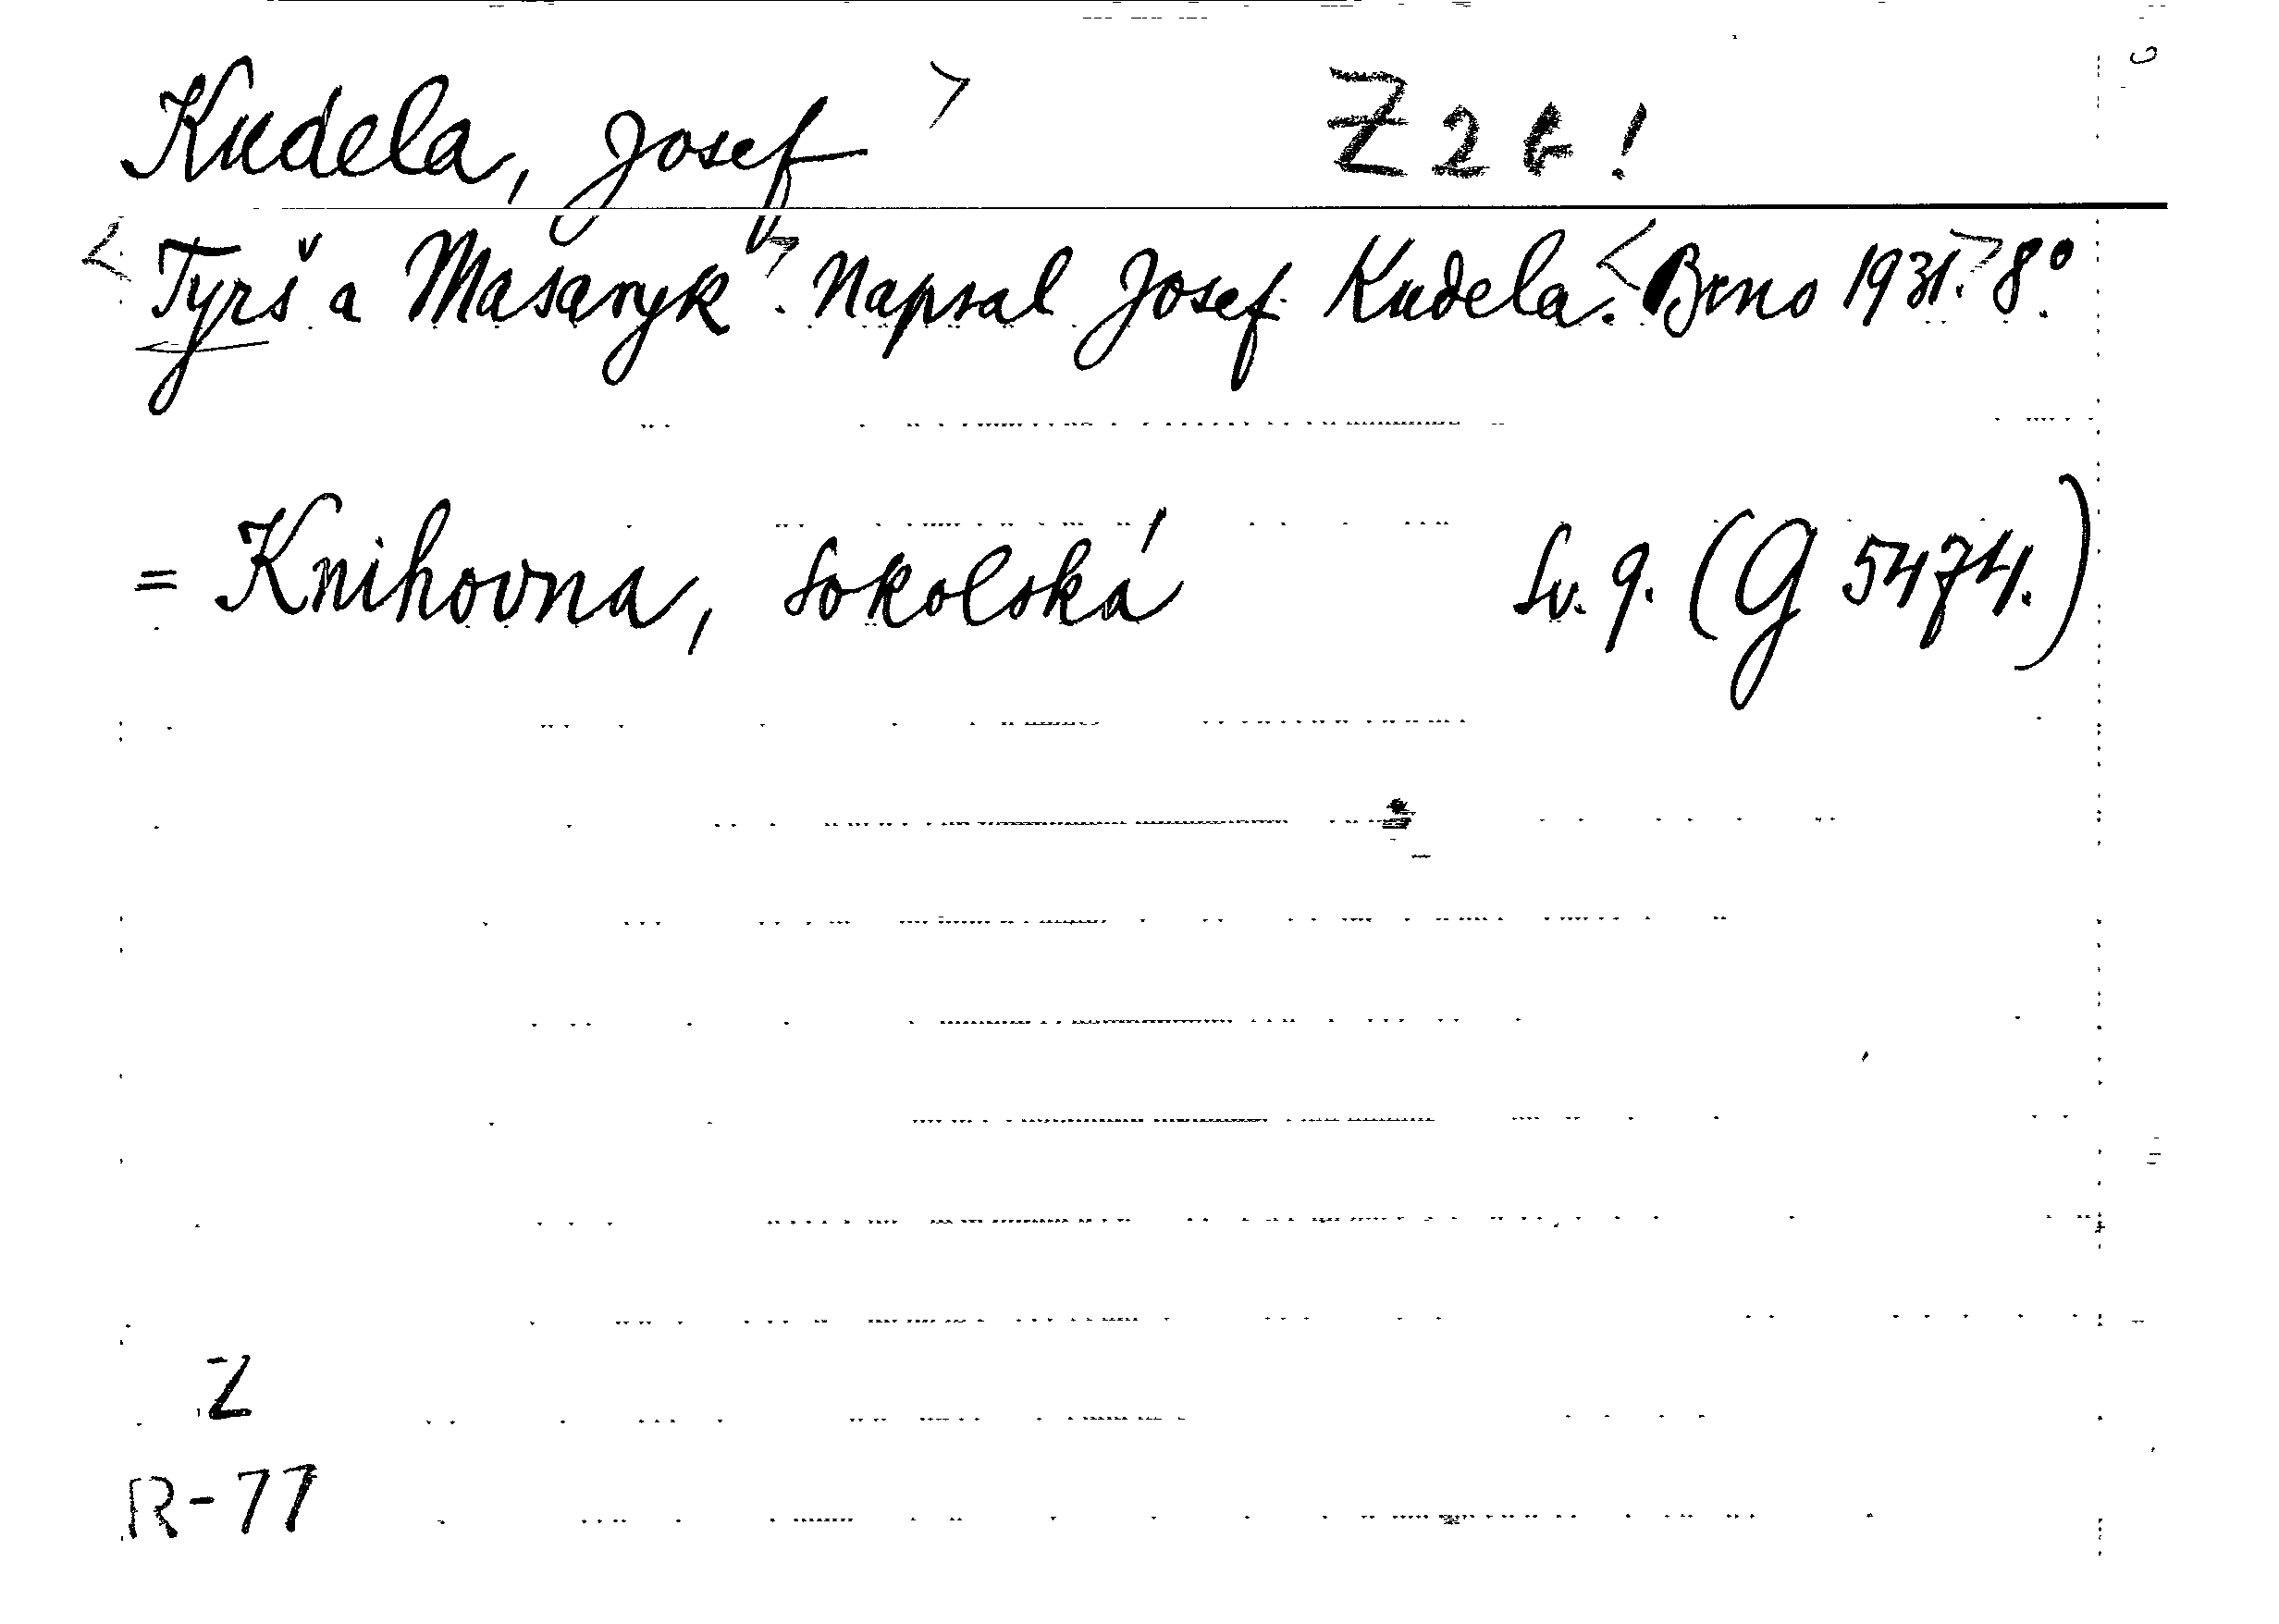 Kudela, Josef > Z 2 t !
< Tyrš a Masaryk >. Napsal Josef Kudela. < Brno 1931. > 8°.
= Knihovna, Sokolská Sv. 9. (G 5474.)
Z
R-77